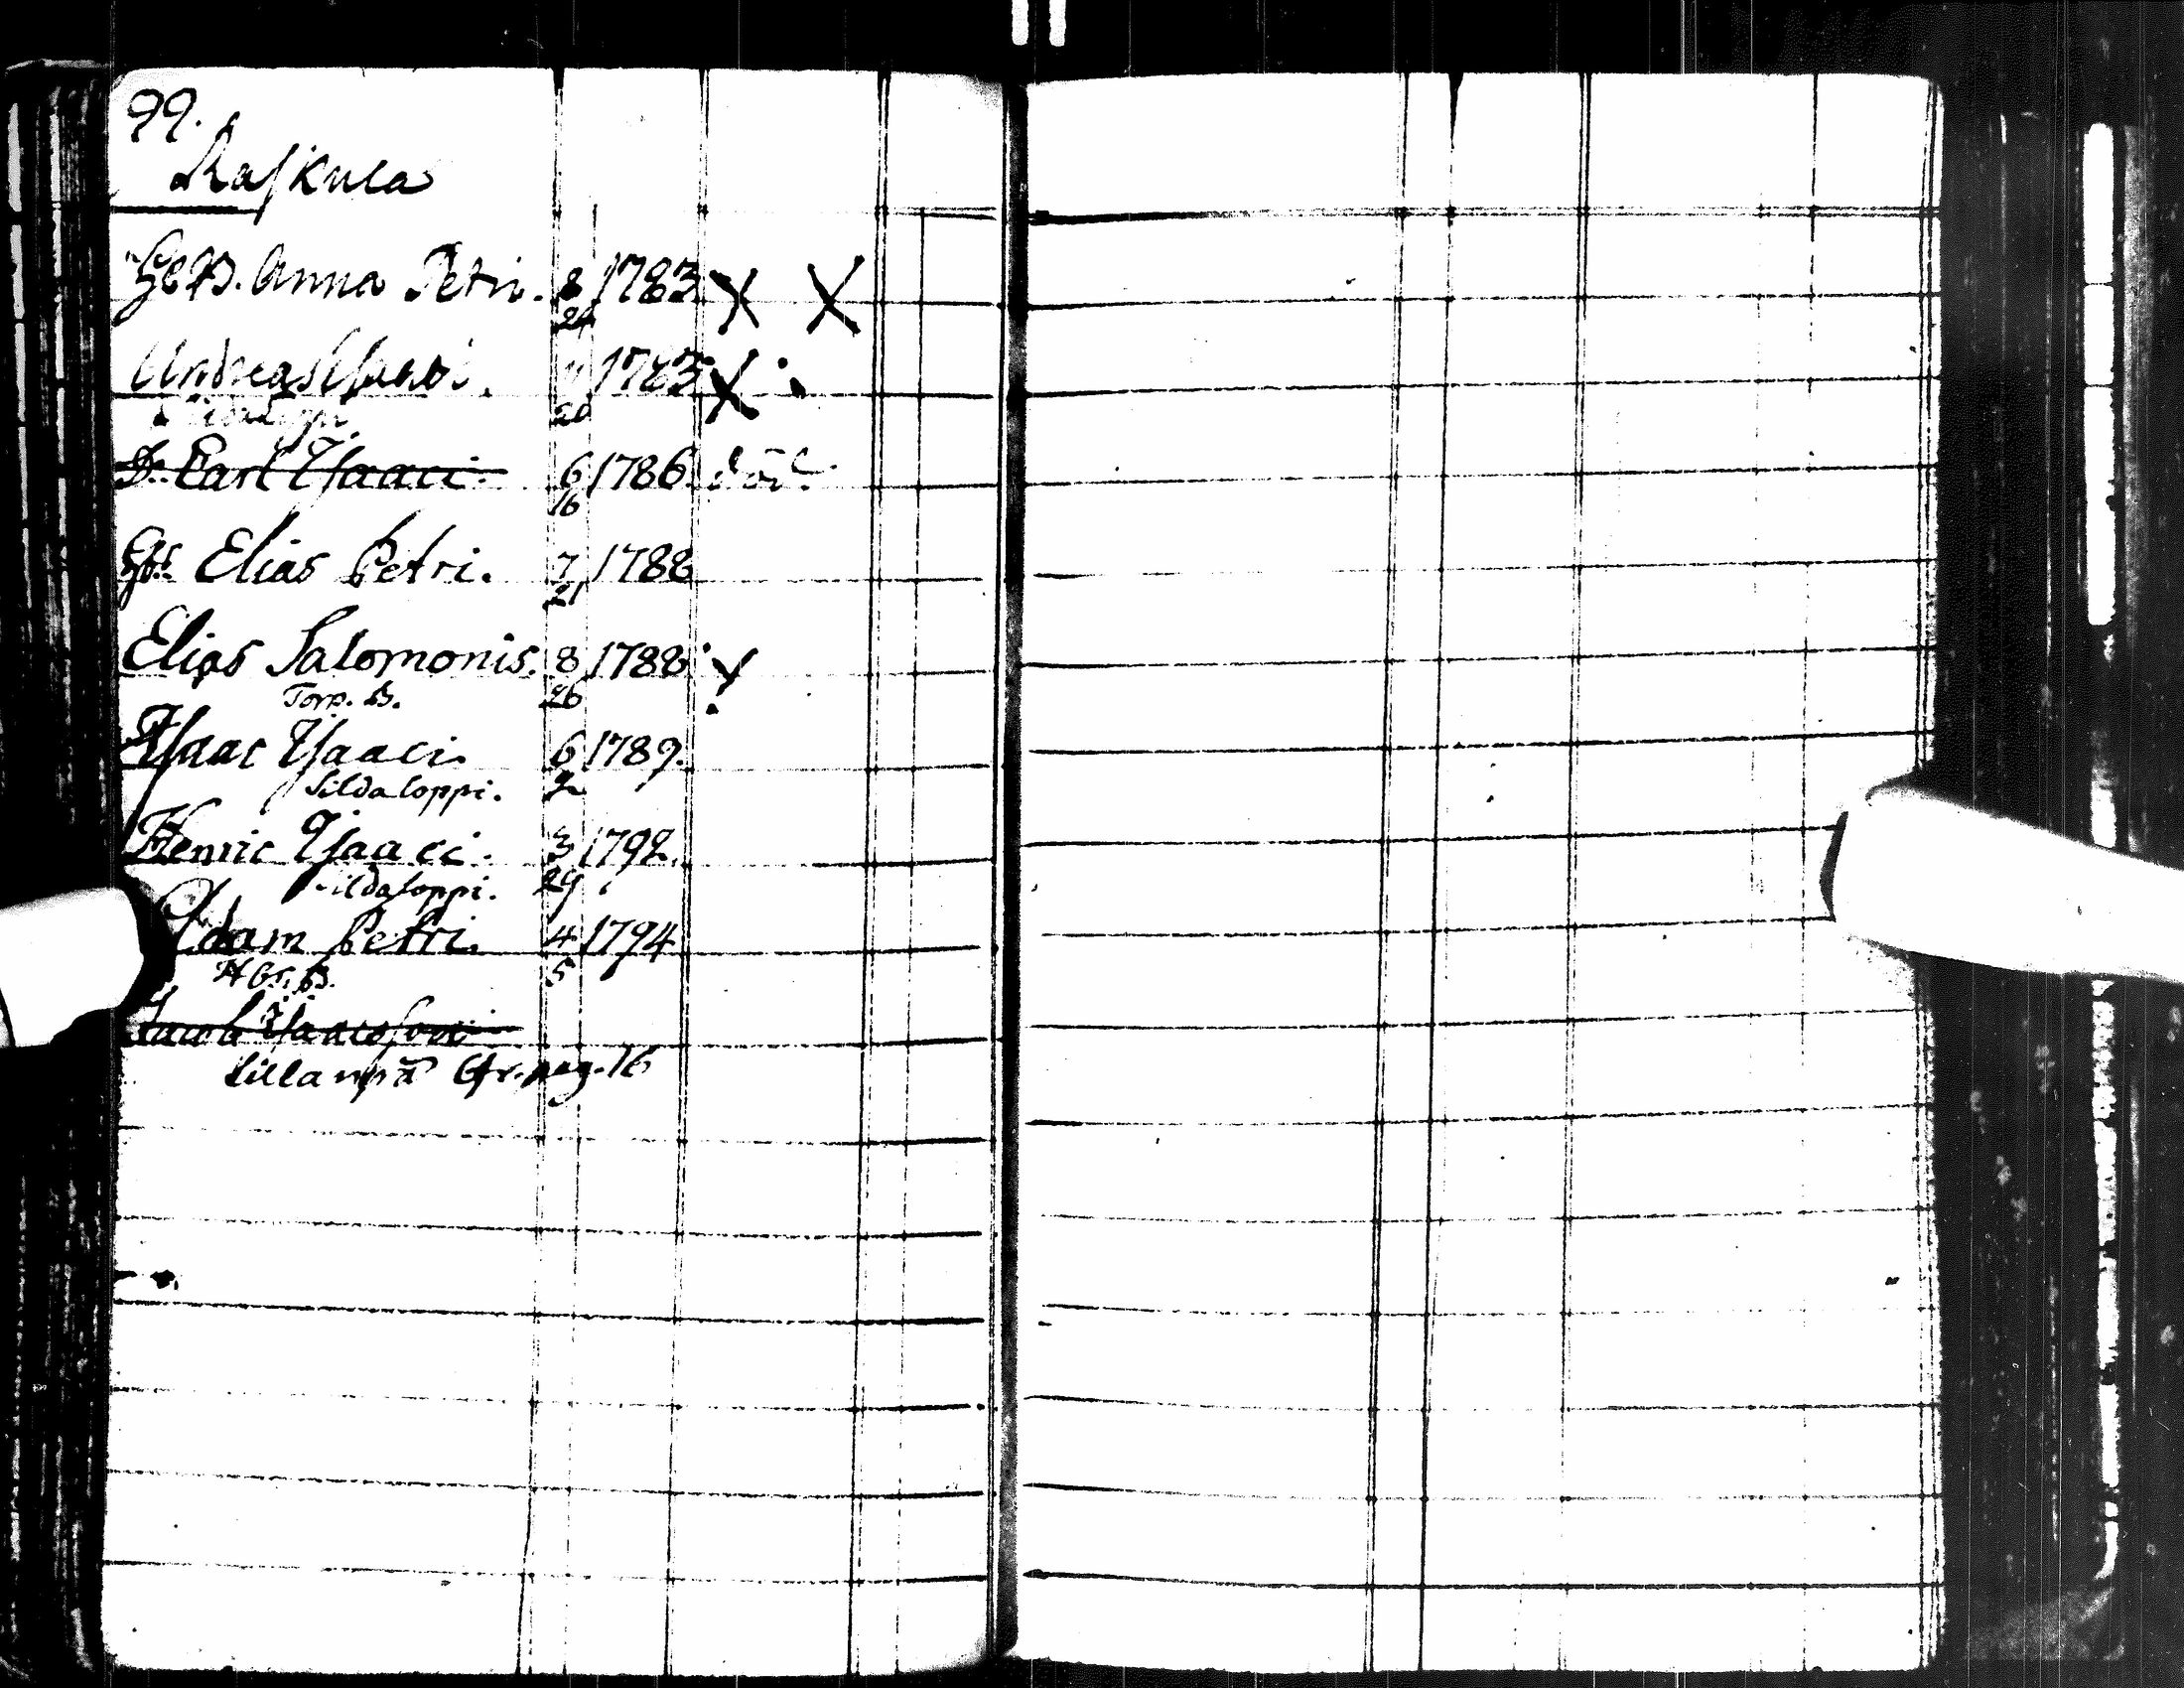 99.
Raskula
HbB. Anna Petri. 8/24 1783 X X
Andreas Isaaci. 20 1783 X
D. Carl Isaaci. 6/16 1786 död.
Hbs. Elias Petri. 7/21 1788
Elias Salomonis. 8/26 1788
Torp. B.
Isaac Isaaci. 6/2 1789.
Sildaloppi.
Henric Isaaci. 3/29 1792.
Sildaloppi.
Adam Petri. 4/5 1794
Hbs. B.
Jacob Isacsson
Lillannä Cfr. pag. 16